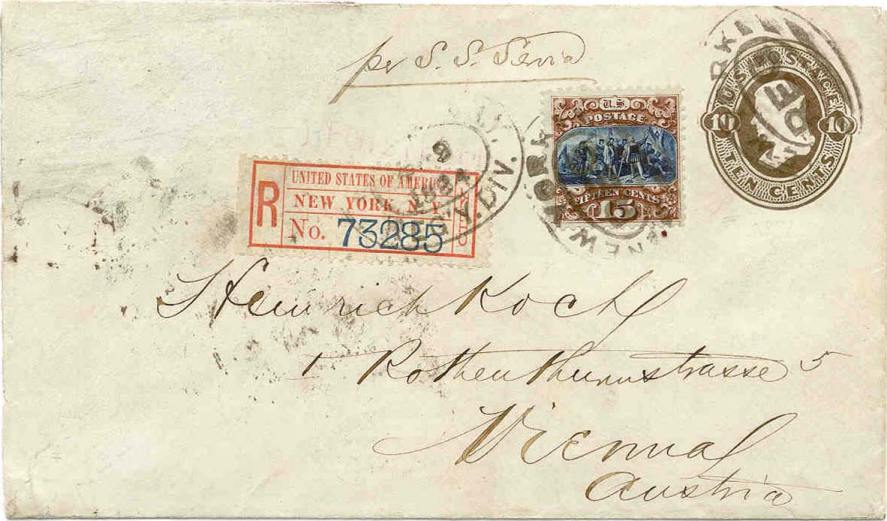 per S. S. Servia
U.S.
POSTAGE
FIFTEEN CENTS
15
U.S. POSTAGE
10 10
TEN CENTS
NEW YORK
9
1884
N.Y. DIV.
R
UNITED STATES OF AMERICA
NEW YORK N.Y.
No. 73285
Heinrich Koch
1 Rothenthurmstrasse 5
Vienna
Austria